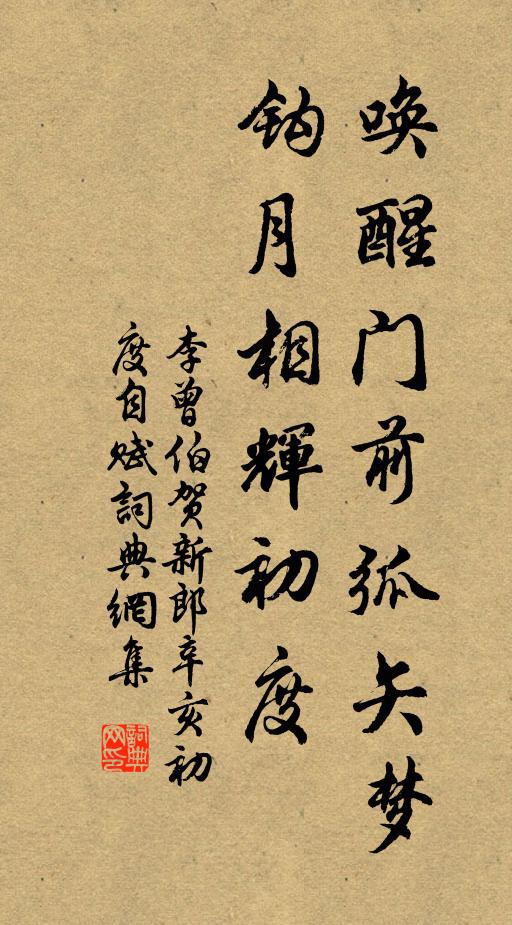 唤醒门前弧矢梦
钩月相輝初度
李曾伯贺新郎辛亥初
度自赋詞典網集
詞典网印